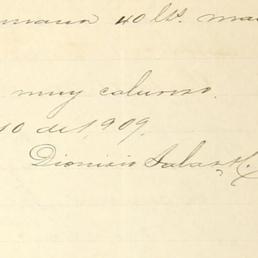 40 lts. ma
muy caluroso.
10 de 1,909.
Dionisio Salas H.